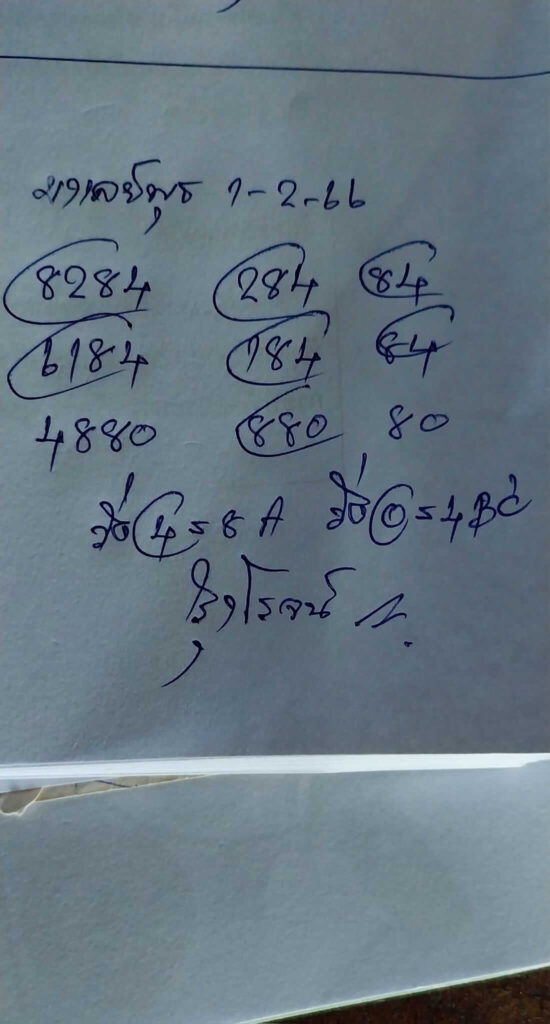 มาเลย์พุธ 1-2-66
8284 284 84
6184 184 84
4880 880 80
วิ่ง 4 = 8 A วิ่ง 0 = 4 BC
รุ่งโรจน์